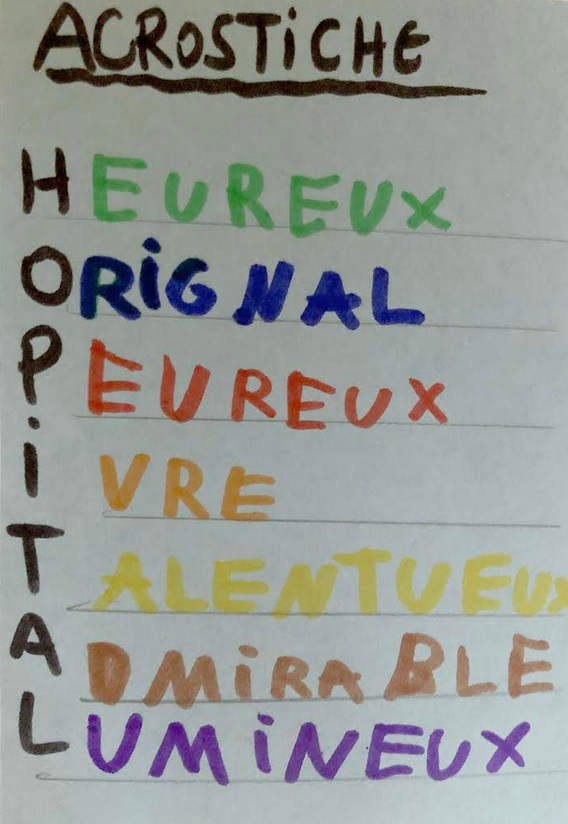 ACROSTiCHE
HEUREUX
ORiGNAL
PEUREUX
iVRE
TALENTUEUX
ADMiRABLE
LUMiNEUX